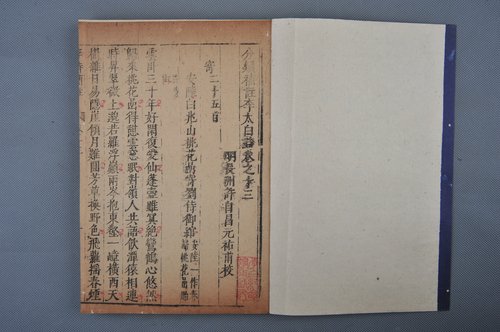 分類補註李太白詩卷之十三
明長洲許自昌玄祐甫校
寄二十五首
安陸白兆山桃花巖寄劉侍御綰
雲臥三十年好閑復愛仙蓬壺雖冥絕鸞鶴心悠然
歸來桃花巖得憩雲窓眠對嶺人共語飲潭猿相連
時昇翠微上邈若羅浮巔兩岑抱東壑一嶂橫西天
樹雜日易隱崖傾月難圓芳草換野色飛蘿搖春煙